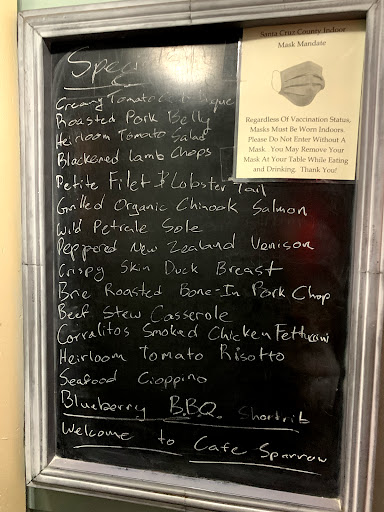 Specials
Creamy Tomato Bisque
Roasted Pork Belly
Heirloom Tomato Salad
Blackened Lamb Chops
Petite Filet & Lobster Tail
Grilled Organic Chinook Salmon
Wild Petrale Sole
Peppered New Zealand Venison
Crispy Skin Duck Breast
Brie Roasted Bone-In Pork Chop
Beef Stew Casserole
Corralitos Smoked Chicken Fettuccini
Heirloom Tomato Risotto
Seafood Cioppino
Blueberry B.B.Q. Shortrib
Welcome to Cafe Sparrow
Santa Cruz County Indoor
Mask Mandate
Regardless Of Vaccination Status,
Masks Must Be Worn Indoors.
Please Do Not Enter Without A
Mask. You May Remove Your
Mask At Your Table While Eating
and Drinking. Thank You!